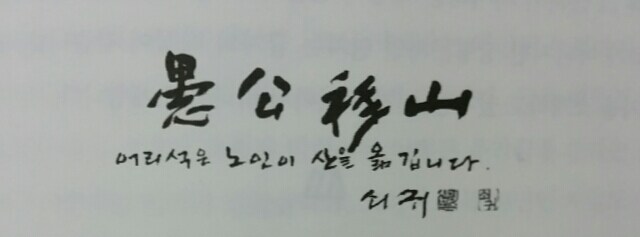 愚公移山
어리석은 노인이 산을 옮깁니다.
쇠귀